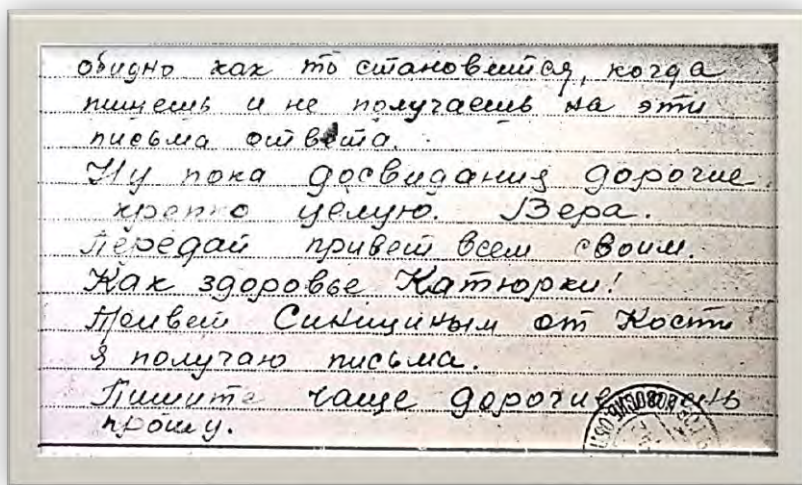 обидно как то становится, когда
пишешь и не получаешь на эти
письма ответа.
Ну пока досвидания дорогие.
крепко целую. Вера.
Передай привет всем своим.
Как здоровье Катюрки!
Привет Синициным от Кости
я получаю письма.
Пишите чаще дорогие
прошу.